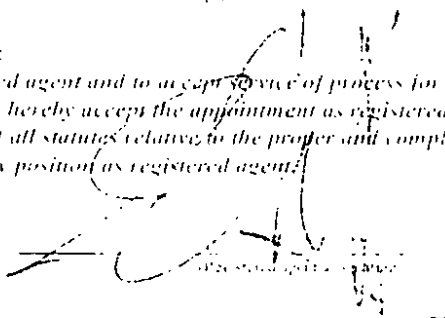 ed agent and to accept service of process for
hereby accept the appointment as registered
all statutes relative to the proper and compl
position as registered agent.